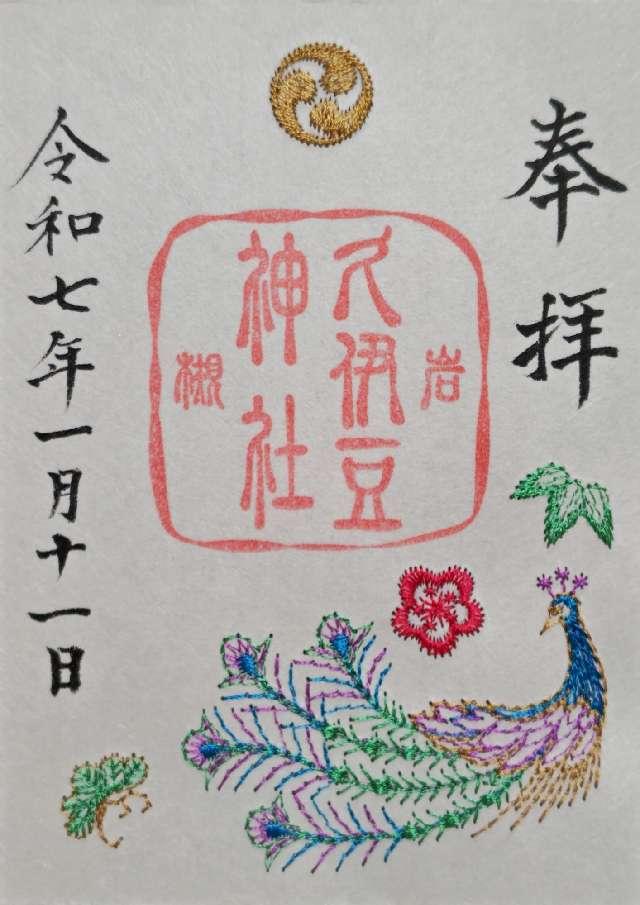 奉拝
岩槻
久伊豆
神社
令和七年一月十一日